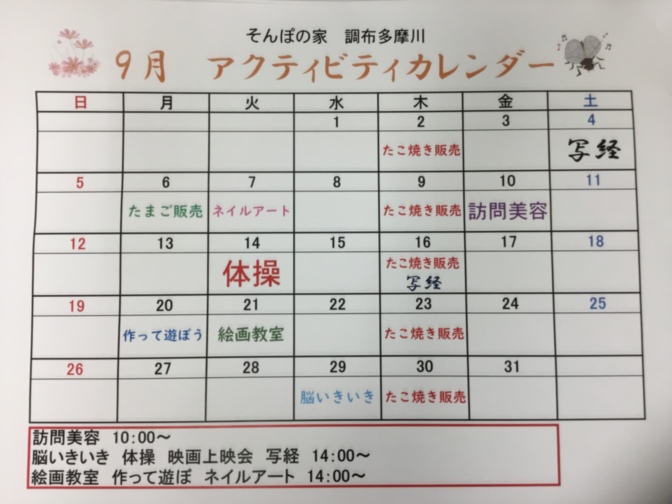 そんぽの家 調布多摩川
9月 アクティビティカレンダー
日 月 火 水 木 金 土
1 2 3 4
たこ焼き販売 写経
5 6 7 8 9 10 11
たまご販売 ネイルアート たこ焼き販売 訪問美容
12 13 14 15 16 17 18
体操 たこ焼き販売
写経
19 20 21 22 23 24 25
作って遊ぼう 絵画教室 たこ焼き販売
26 27 28 29 30 31
脳いきいき たこ焼き販売
訪問美容 10:00～
脳いきいき 体操 映画上映会 写経 14:00～
絵画教室 作って遊ぼ ネイルアート 14:00～